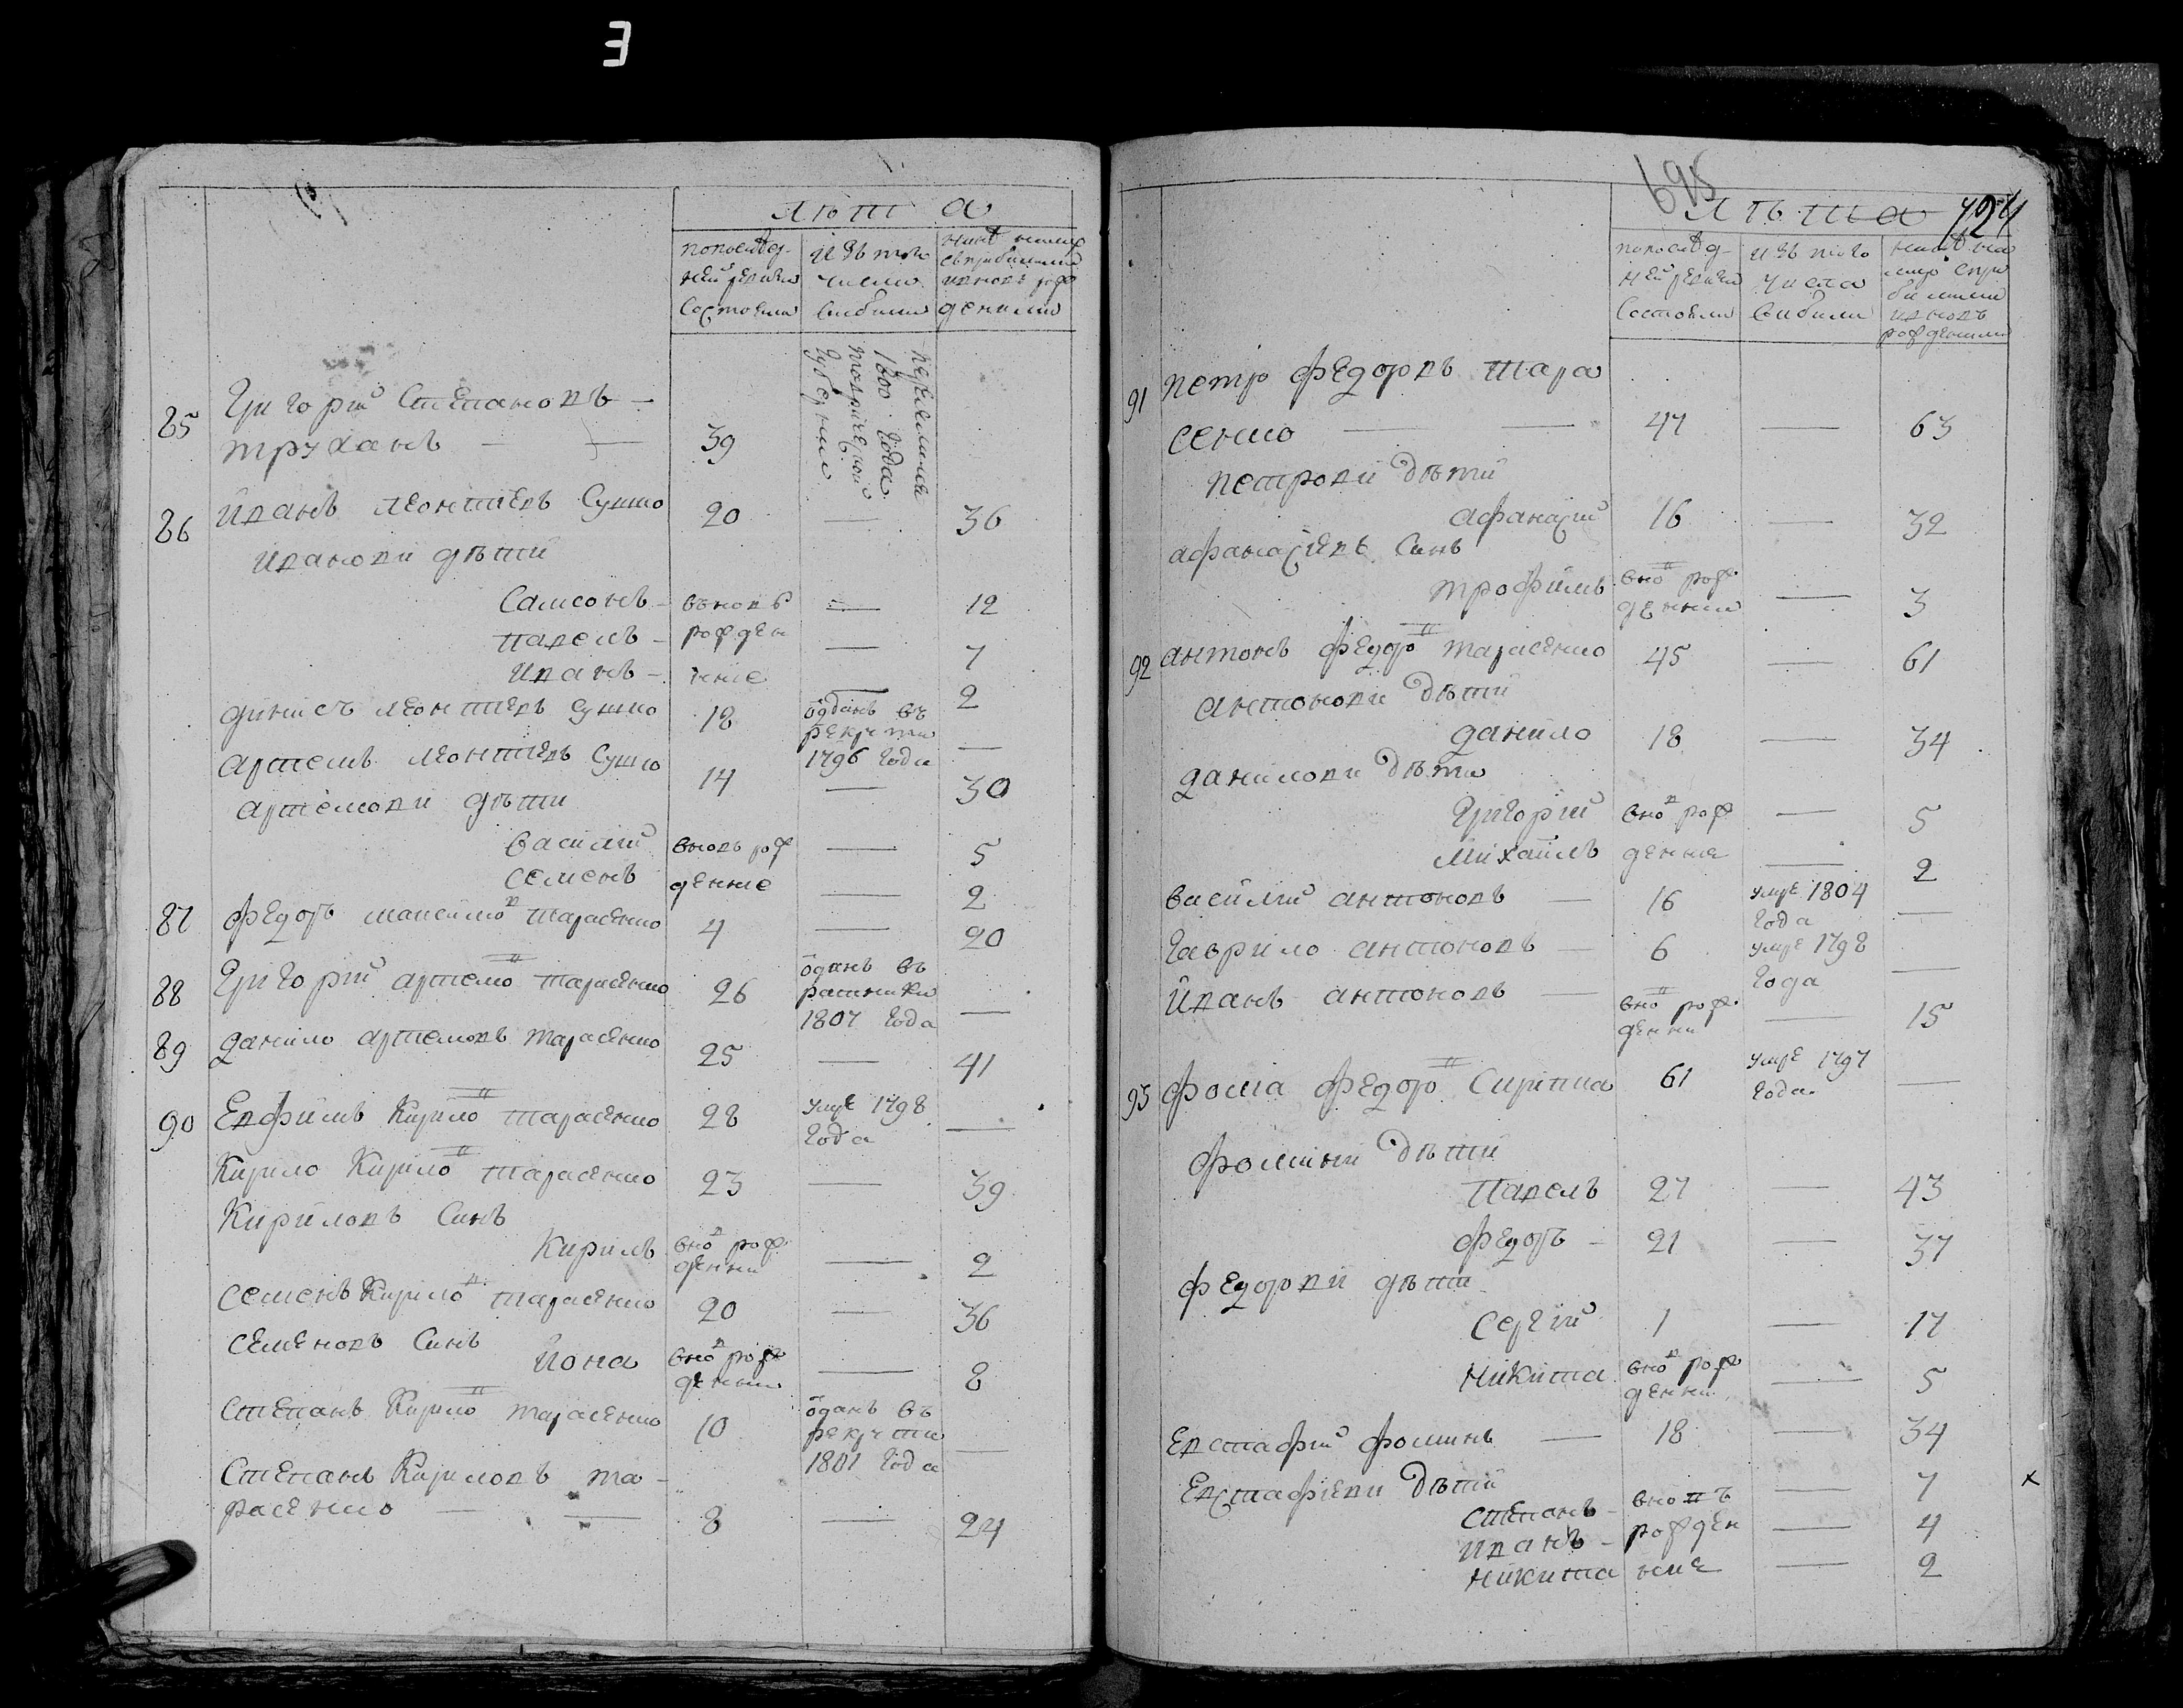 Лѣта
попослед-
ней ревизии
состояло
изъ того
числа
выбыло
ныне налицо
съ прибылыми
и вновь рож
денными
85 Григорий Степановъ —
Труханъ — — 39
переселился
1800 года
Таврической
губернии
86 Иванъ Леонтиевъ Сушко 20 — 36
Ивановы дѣти
Самсонъ — вновь — 12
Павелъ — рожден — 7
Иванъ — ные — 2
Финисъ Леонтиевъ Сушко 18 одданъ въ рекруты 1796 года —
Артемъ Леонтиевъ Сушко 14 — 30
Артемовы дѣти
Василий вновь рож — 5
Семенъ денные — 2
87 Федоръ Максимов Тарасенко 4 — 20
88 Григорий Артемов Тарасенко 26 одданъ въ ратники 1807 года —
89 Данило Артемовъ Тарасенко 25 — 41
90 Евфимъ Кирилов Тарасенко 28 умре 1798 года —
Кирило Кирилов Тарасенко 23 — 39
Кириловъ синъ
Кирилъ внов рожденны — 2
Семенъ Кирилов Тарасенко 20 — 36
Семеновъ синъ
Иона внов рожденны — 8
Степанъ Кирилов Тарасенко 10 одданъ въ рекруты 1801 года —
Степанъ Кириловъ Та-
расенко — — 8 — 24
695
724
Лѣта
попослед-
ней ревизии
состояло
изъ того
числа
выбыло
ныне на
лицо спри
былыми
и вновь
рожденными
91 Петро Федоровъ Тара
сенко — — 47 — 63
Петровы дѣти
Афанасий 16 — 32
Афанасиевъ синъ
Трофимъ внов рожденны — 3
92 Антонъ Федоров Тарасенко 45 — 61
Антоновы дѣти
Данило 18 — 34
Даниловы дѣти
Григорий внов рож — 5
Михаилъ денные — 2
Василий Антоновъ — 16 умре 1804 года —
Гаврило Антоновъ — 6 умре 1798 года —
Иванъ Антоновъ — внов рожденны — 15
93 Фома Федоров Скрипка 61 умре 1797 года —
Фомины дѣти
Павелъ 27 — 43
Федоръ — 21 — 37
Федоровы дѣти
Сергий 1 — 17
Никита внов рожденны — 5
Евстафий Фоминъ — 18 — 34
Евстафиевы дѣти
Степанъ — вновъ — 7 х
Иванъ — рожден — 4
Никита ные — 2